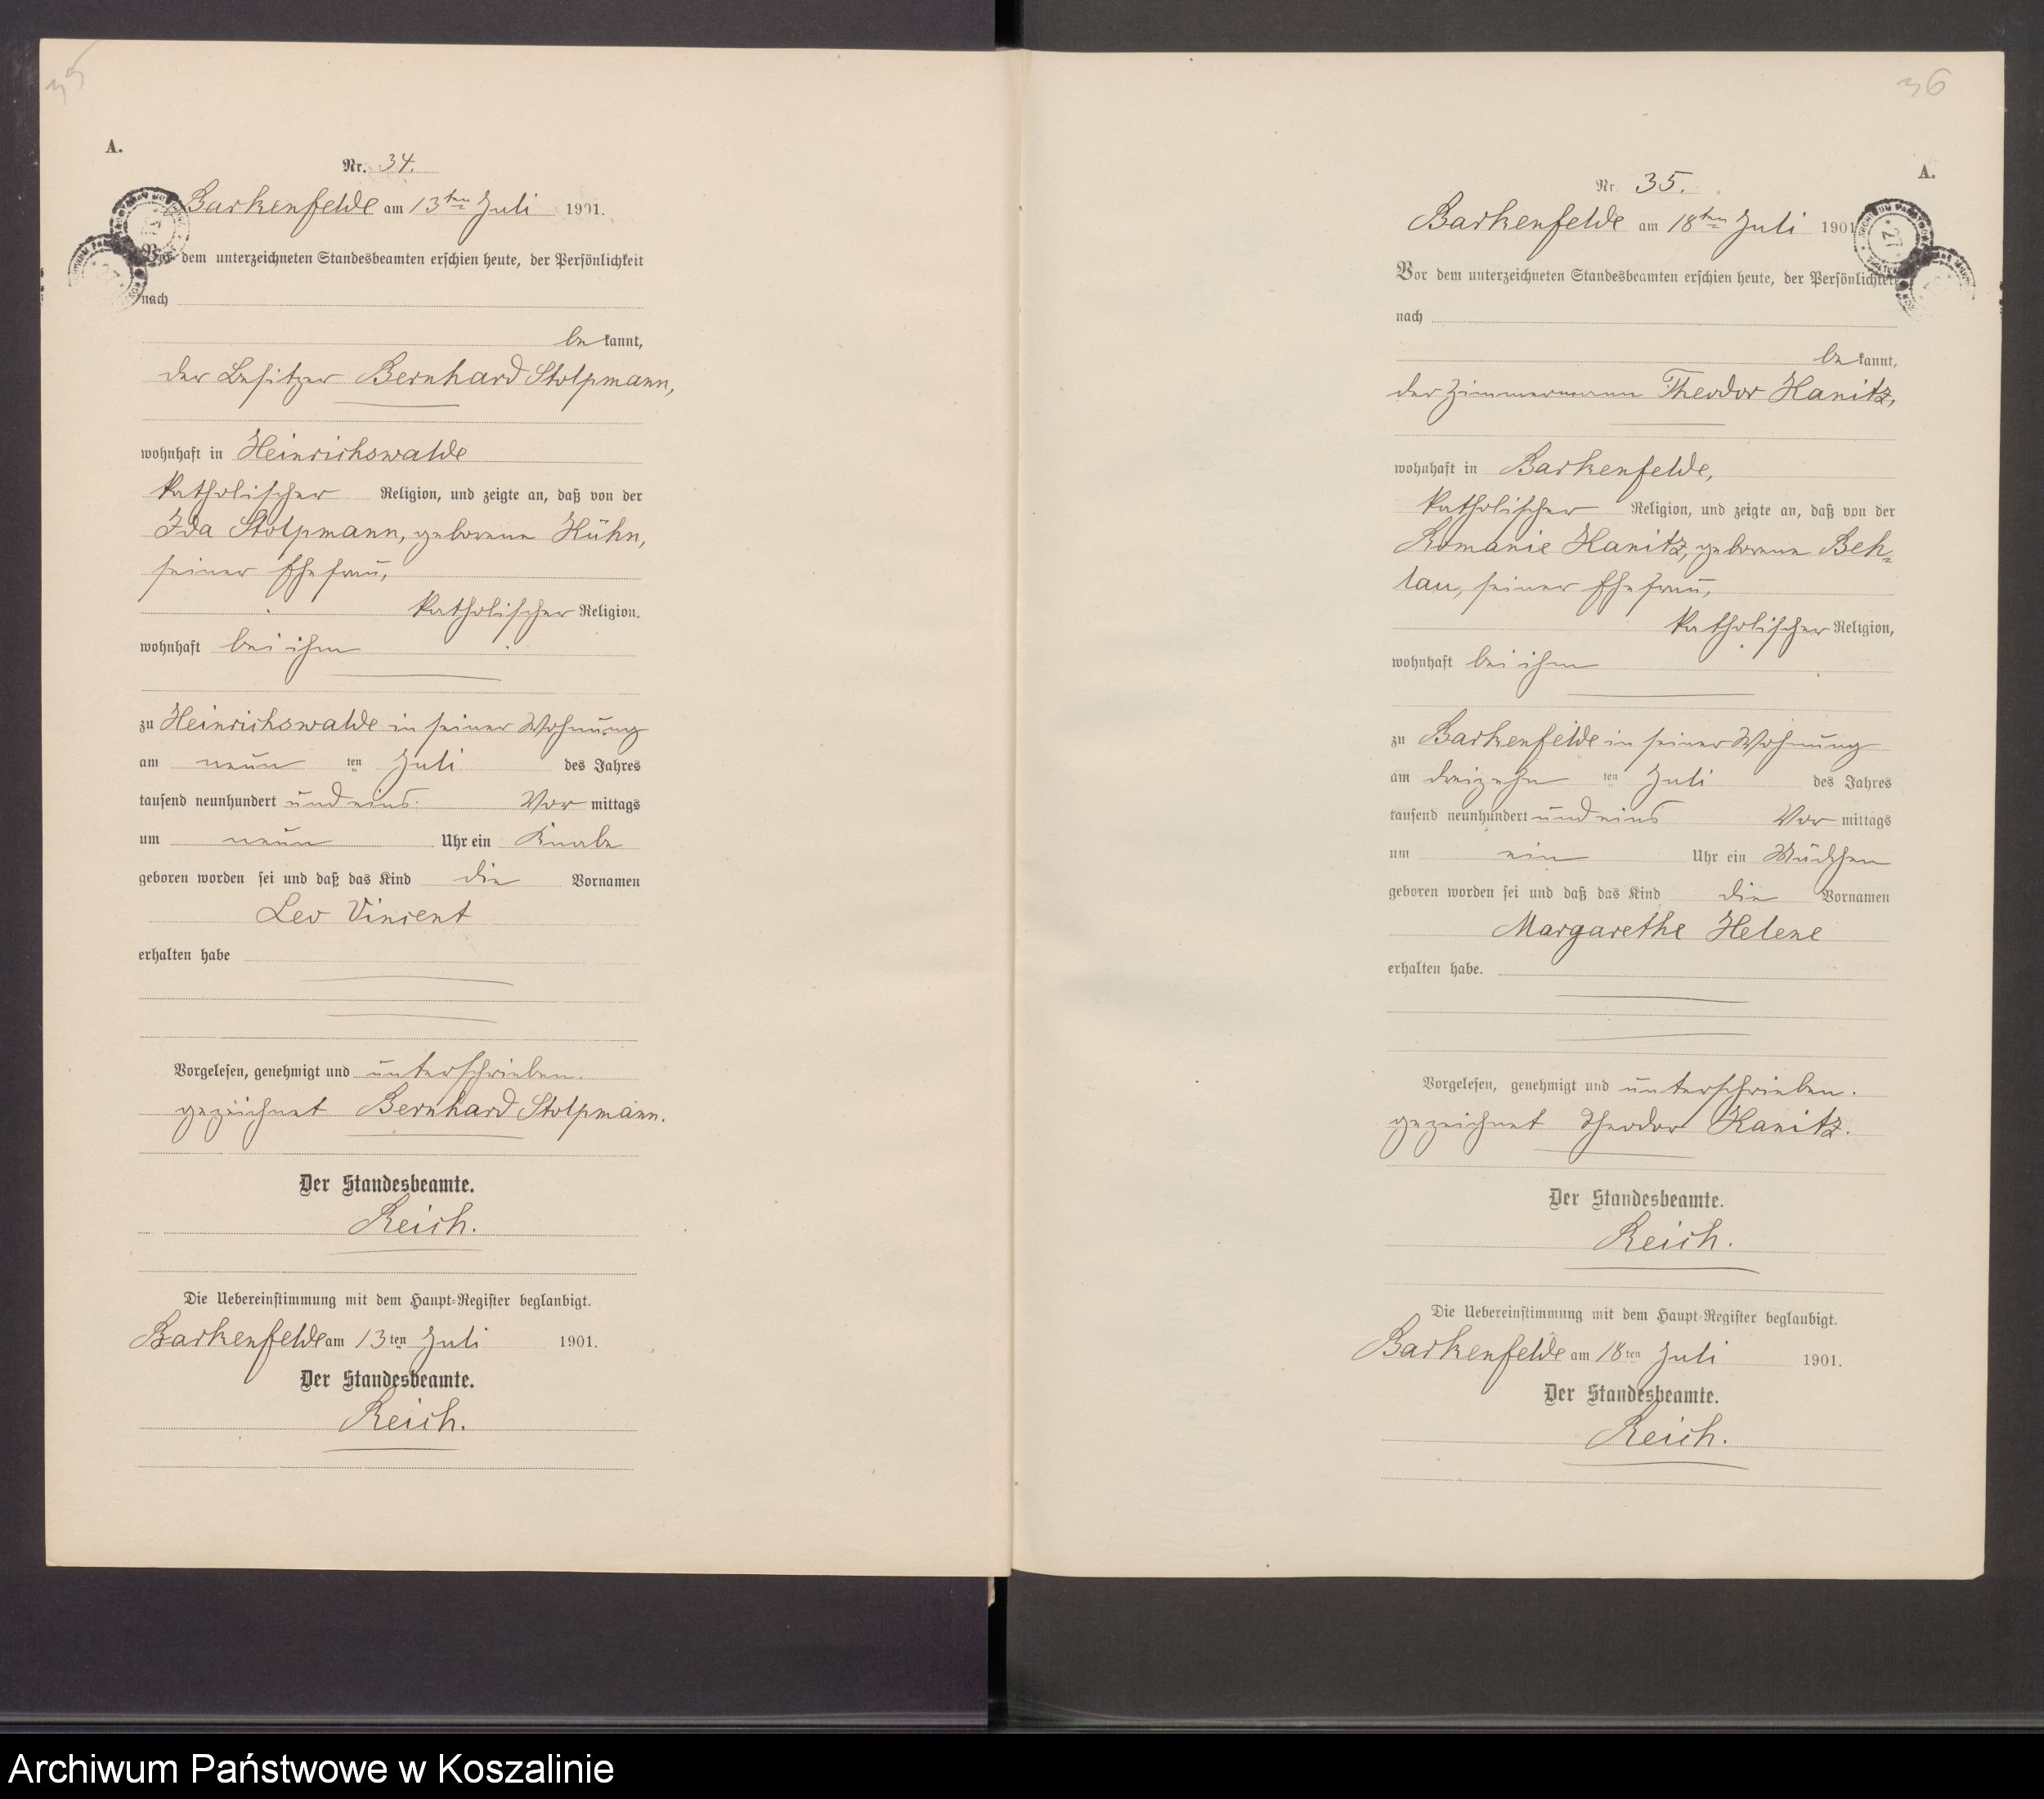 35
A.
Nr. 34.
Barkenfelde am 13ten Juli 1901.
Vor dem unterzeichneten Standesbeamten erschien heute, der Persönlichkeit
nach
be kannt,
der Besitzer Bernhard Stolpmann,
wohnhaft in Heinrichswalde
katholischer Religion, und zeigte an, daß von der
Ida Stolpmann, geborene Kühn,
seiner Ehefrau,
katholischer Religion.
wohnhaft bei ihm
zu Heinrichswalde in seiner Wohnung
am neun ten Juli des Jahres
tausend neunhundert und eins Vor mittags
um neun Uhr ein Knabe
geboren worden sei und daß das Kind die Vornamen
Leo Vincent
erhalten habe
Vorgelesen, genehmigt und unterschrieben.
gezeichnet Bernhard Stolpmann.
Der Standesbeamte.
Reich.
Die Uebereinstimmung mit dem Haupt-Register beglaubigt.
Barkenfelde am 13ten Juli 1901.
Der Standesbeamte.
Reich.
36
A.
Nr. 35.
Barkenfelde am 18ten Juli 1901
Vor dem unterzeichneten Standesbeamten erschien heute, der Persönlichkeit
nach
be kannt,
der Zimmermann Theodor Kanitz,
wohnhaft in Barkenfelde,
katholischer Religion, und zeigte an, daß von der
Romanie Kanitz, geborene Beh-
lau, seiner Ehefrau,
katholischer Religion,
wohnhaft bei ihm
zu Barkenfelde in seiner Wohnung
am dreizehn ten Juli des Jahres
tausend neunhundert und eins Vor mittags
um ein Uhr ein Mädchen
geboren worden sei und daß das Kind die Vornamen
Margarethe Helene
erhalten habe.
Vorgelesen, genehmigt und unterschrieben.
gezeichnet Theodor Kanitz.
Der Standesbeamte.
Reich.
Die Uebereinstimmung mit dem Haupt-Register beglaubigt.
Barkenfelde am 18ten Juli 1901.
Der Standesbeamte.
Reich.
Archiwum Państwowe w Koszalinie